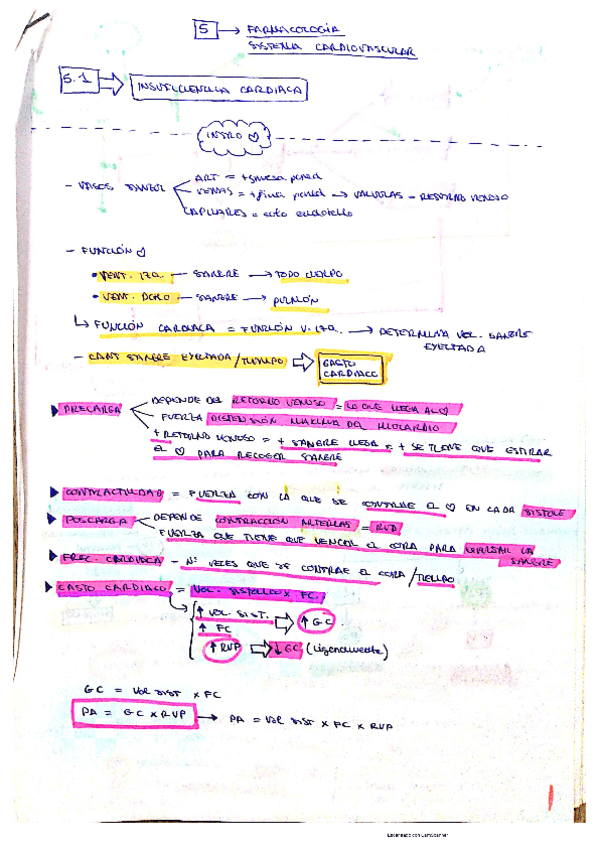 5 → FARMACOLOGÍA
SISTEMA CARDIOVASCULAR
5.1 ⇒ INSUFICIENCIA CARDIACA
INTRO ♡
- VASOS SANGU
ART = + gruesa pared
VENAS = + fina pared → VALVULAS - RETORNO VENOSO
CAPILARES = endotelio
- FUNCIÓN ♡
• VENT. IZQ. — SANGRE → TODO CUERPO
• VENT. DCHO — SANGRE → PULMÓN
↳ FUNCIÓN CARDIACA = FUNCIÓN V. IZQ. → DETERMINA VOL. SANGRE
EYECTADA
- CANT SANGRE EYECTADA / TIEMPO ⇒ GASTO
CARDIACO
▶ PRECARGA
DEPENDE DEL RETORNO VENOSO = LO QUE LLEGA AL ♡
FUERZA DISTENSIÓN MAXIMA DEL MIOCARDIO
+ RETORNO VENOSO = + SANGRE LLEGA = + SE TIENE QUE ESTIRAR
EL ♡ PARA RECOGER SANGRE
▶ CONTRACTILIDAD = FUERZA CON LA QUE SE CONTRAE EL ♡ EN CADA SISTOLE
▶ POSCARGA
DEPENDE CONTRACCIÓN ARTERIAS = RVP
FUERZA QUE TIENE QUE VENCER EL CORA PARA EXPULSAR LA
SANGRE
▶ FREC. CARDIACA - Nº VECES QUE SE CONTRAE EL CORA / TIEMPO
▶ GASTO CARDIACO = VOL. SISTOLICO X FC.
↑ VOL. SIST. ⇒ ↑ GC.
↑ FC
↑ RVP ⇒ ↓ GC (ligeramente)
GC = VOL SIST x FC
PA = GC x RVP → PA = VOL SIST x FC x RVP
Escaneado con CamScanner